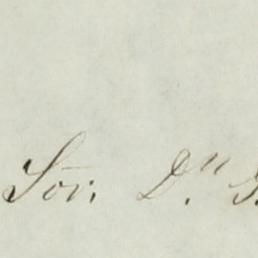 Sor. D.n